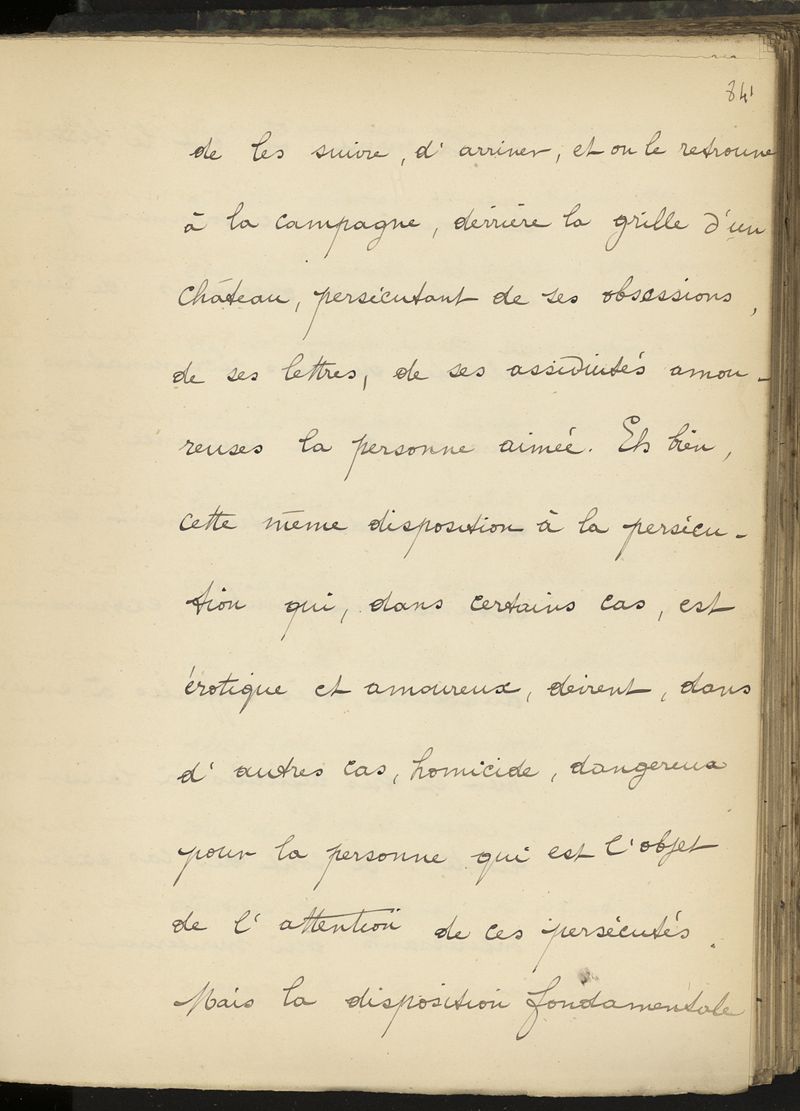 84
de les suivre, d'arriver, et on le retrouve
à la campagne, derrière la grille d'un
château, persécutant de ses obsessions,
de ses lettres, de ses assiduités amou-
reuses la personne aimée. Eh bien,
cette même disposition à la persécu-
tion qui, dans certains cas, est
érotique et amoureux, devient, dans
d'autres cas, homicide, dangereux
pour la personne qui est l'objet
de l'attention de ces persécutés.
Mais la disposition fondamentale